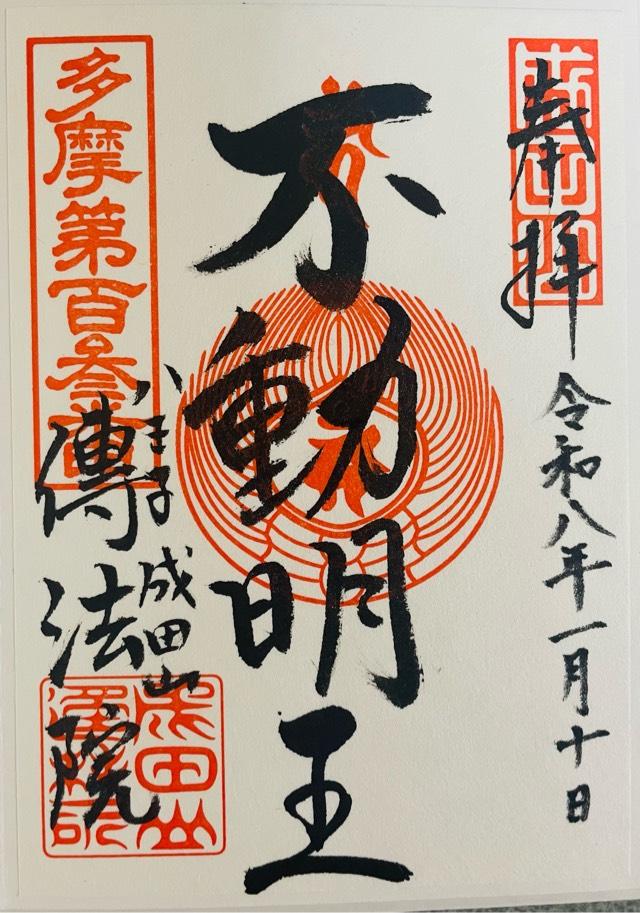 奉拝
令和八年一月十日
不動明王
八王子
成田山
傳法院
多摩第百叁
成田山